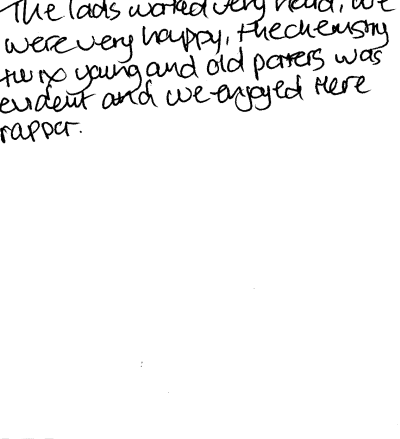 The lads worked very hard, we
were very happy, the chemistry
young and old parters was
evident and we enjoyed Here
rappor.